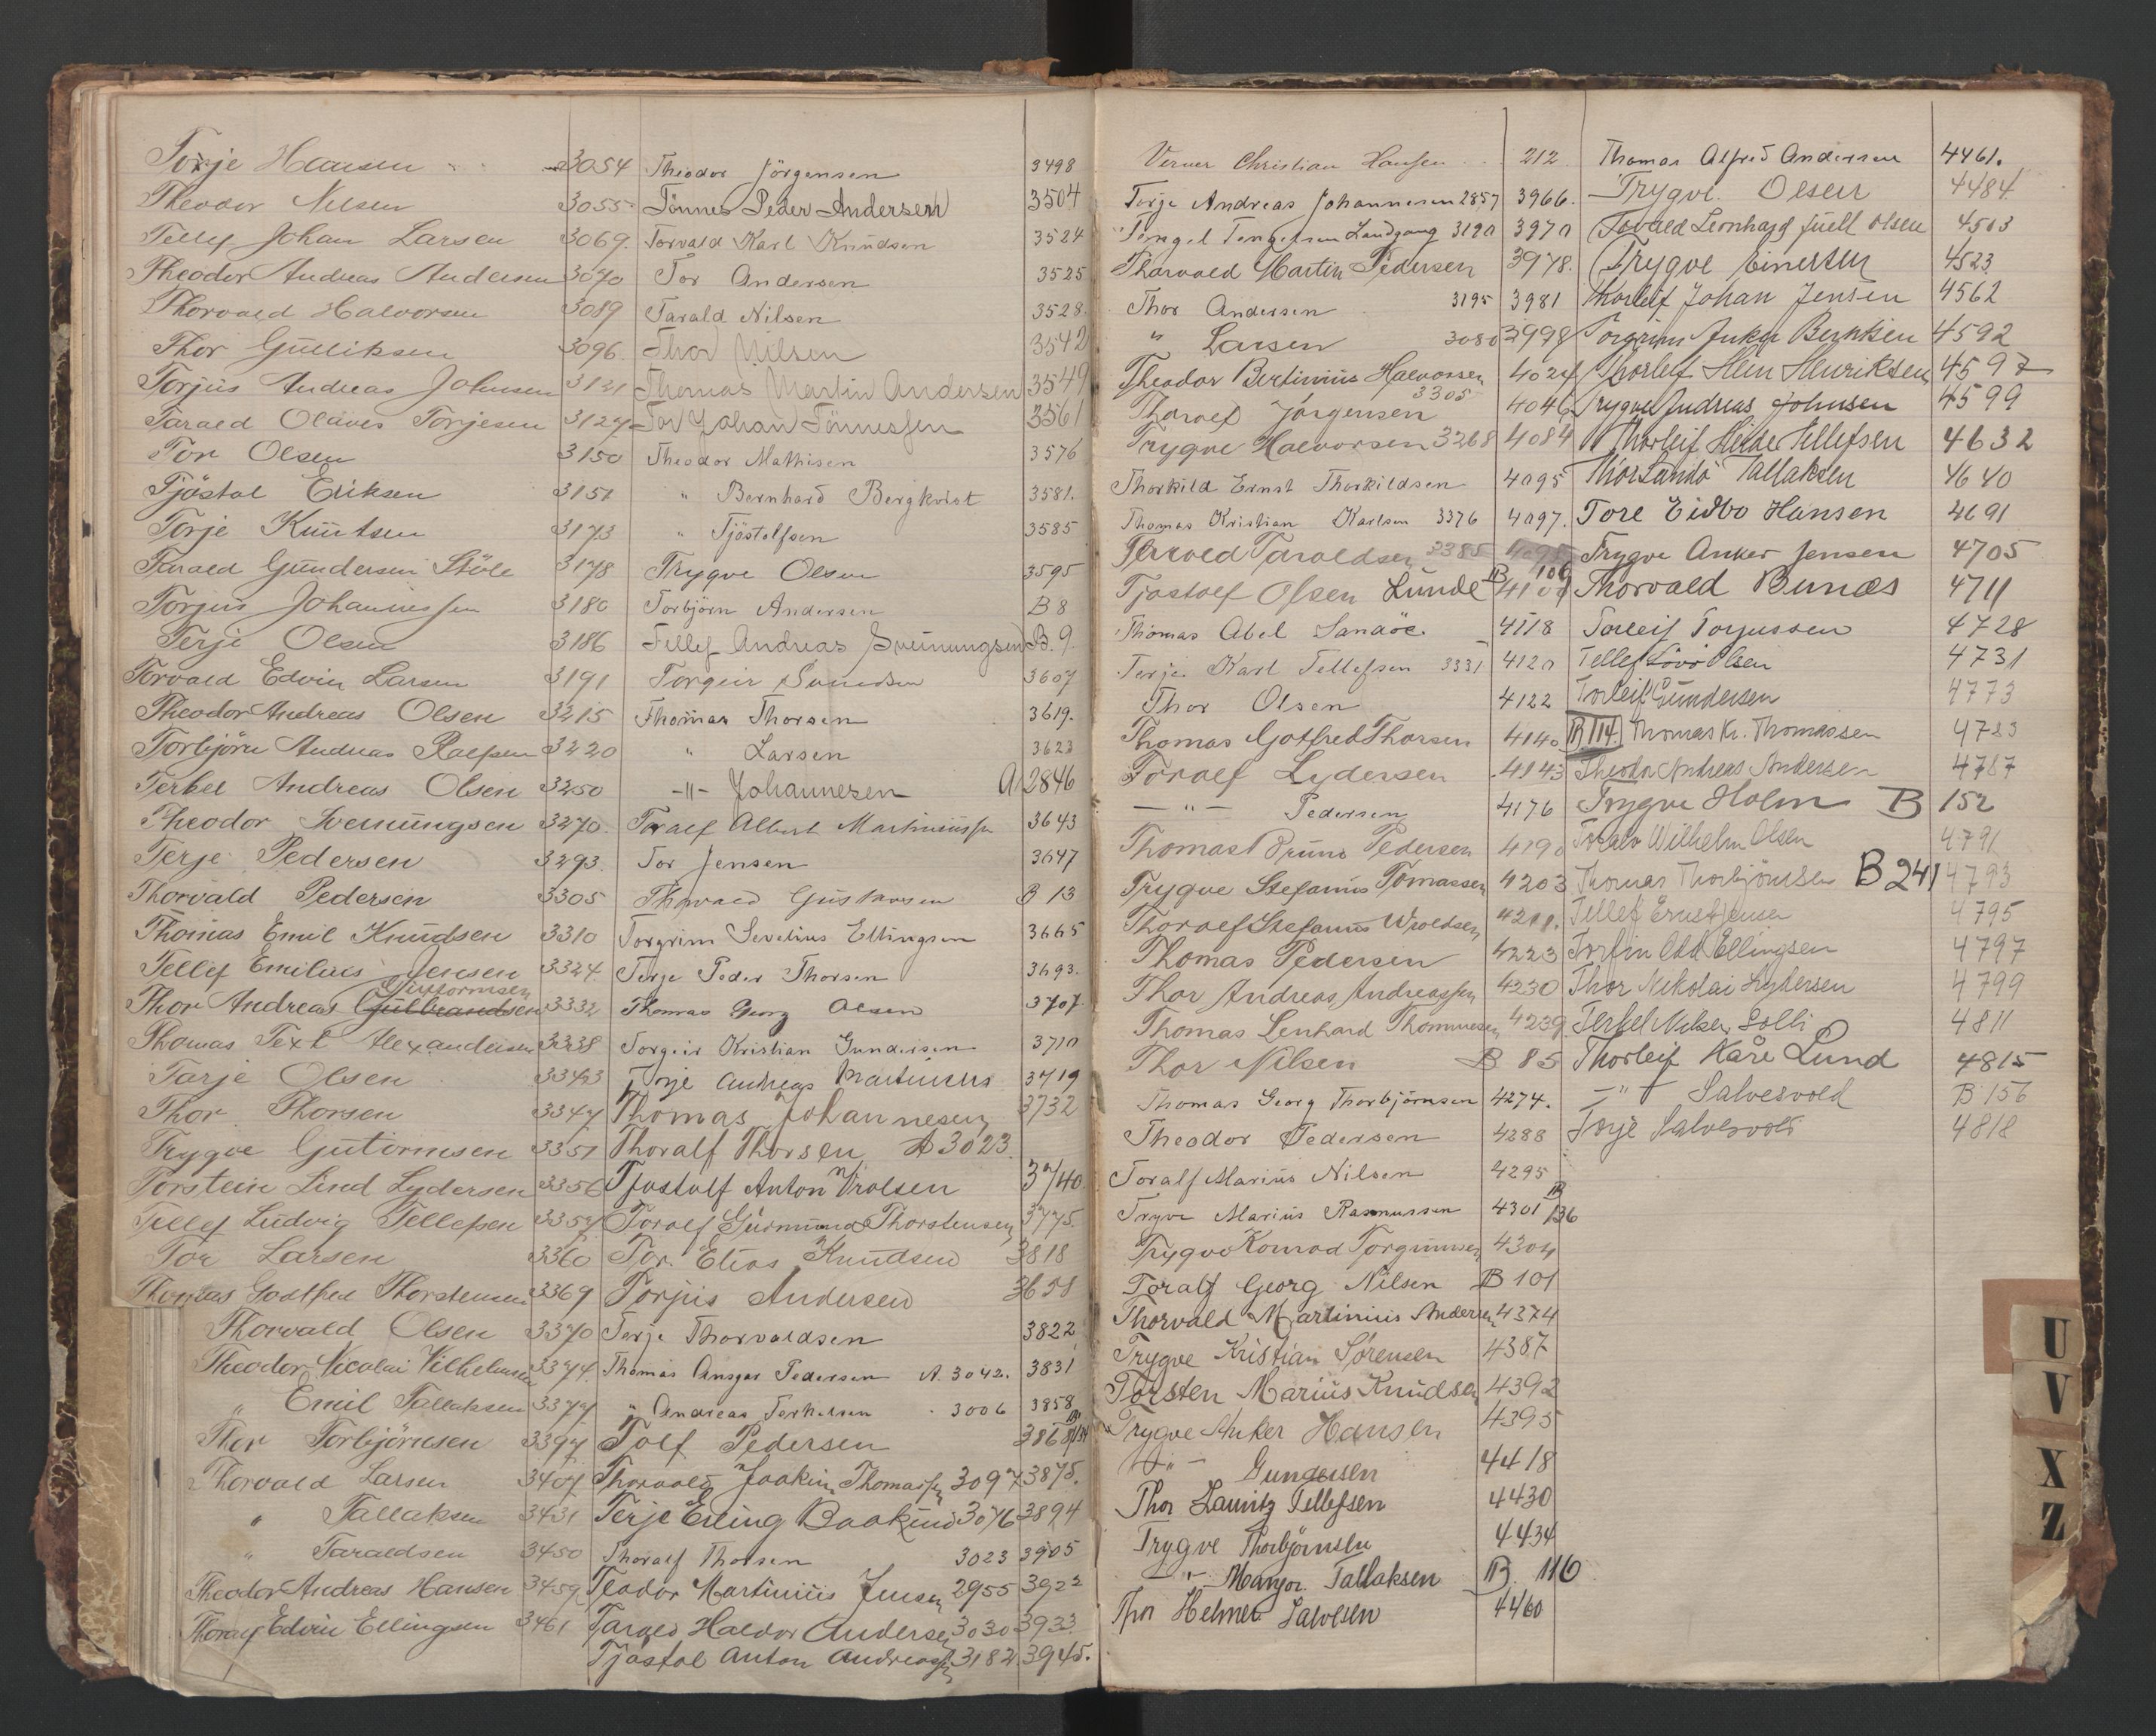 Torje Hansen 3054
Theodor Nilsen 3055
Tellef Johan Larsen 3069.
Theodor Andreas Andersen 3070
Thorvald Halvorsen 3089
Thor Gulliksen 3096.
Torjus Andreas Johnsen 3121
Tarald Olaves Torjesen 3127
Tor Olsen 3150
Tjöstol Eriksen 3151
Torje Knutsen 3173
Tarald Gundersen Stöle 3178
Torjus Johannessen 3180
Terje Olsen 3186
Torvald Edvin Larsen 3191
Theodor Andreas Olsen 3215
Torbjörn Andreas Roelfsen 3220
Terkel Andreas Olsen 3250
Theodor Svenungsen 3270.
Terje Pedersen 3293.
Thorvald Pedersen 3305
Thomas Emil Knudsen 3310
Tellef Emilius Jensen 3324.
Guttormsen
Thor Andreas Gulbrandsen 3332
Thomas Text Alexandersen 3338
Tarje Olsen 3343
Thor Thorsen 3347
Trygve Gutormsen 3351
Torstein Lind Lydersen 3356
Tellef Ludvig Tellefsen 3357
Tor Larsen 3360
Thomas Godtfred Thorstensen 3369
Thorvald Olsen 3370
Theodor Nicolai Vilhelmsen 3374.
" Emil Tallaksen 3377
Thor Torbjörnsen 3397
Thorvald Larsen 3407
" Tallaksen 3431
" Taraldsen 3450
Theodor Andreas Hansen 3459
Thoralf Edvin Ellingsen 3461
Theodor Jörgensen 3498
Tönnes Peder Andersen 3504
Torvald Karl Knudsen 3524
Tor Andersen 3525
Tarald Nilsen 3528.
Thor Nilsen 3542
Thomas Martin Andersen 3549
Tor Johan Tönnessen 3561
Theodor Mathisen 3576
" Bernhard Bergkvist 3581.
" Tjöstolfsen 3585
Trygve Olsen 3595
Torbjörn Andersen B 8
Tellef Andreas Sveinungsen B. 9.
Torgeir Svendsen 3607
Thomas Thorsen 3619.
" Larsen 3623
-"- Johannesen A 2846
Toralf Albert Martiniussen 3643
Tor Jensen 3647
Thorvald Gustavsen B 13
Torgrim Severius Ellingsen 3665
Terje Peder Thorsen 3693.
Thomas Georg Olsen 3707.
Torgeir Kristian Gundersen 3710
Torje Andreas Martinius 3719
Thomas Johannesen 3732
Thoralf Thorsen A 3023.
Tjostolf Anton Vrolsen 3740.
Toralf Gudmund Thorstensen 3775.
Tor. Elias Knudsen 3818
Torjus Andersen 3658
Terje Thorvaldsen 3822
Thomas Ansgar Pedersen A. 3042. 3831
" Andreas Terkelsen 3006 3858
Tolf Pedersen 3868 B 134
Thorvald Joakim Thomassen 3097 3875.
Terje Erling Baakind 3076 3894
Thoralf Thorsen 3023 3905
Teodor Martinius Jensen 2955 3922
Tarald Haldor Andersen 3030 3933
Tjöstol Anton Andreassen 3182 3945.
Verner Christian Hansen 212
Torje Andreas Johannesen 2857 3966.
Tengel Tengelsen Landgang 3120 3970
Thorvald Martin Pedersen 3978.
Thor Andersen 3195 3981
" Larsen 3080 3998
Theodor Bertinius Halvorsen 4024
Thoralf Jörgensen 3305 4046
Trygve Halvorsen 3268 4084
Thorkild Ernst Thorkildsen 4095
Thomas Kristian Karlsen 3376 4097.
Tarald Taraldsen 2385 4098
Tjostolf Olsen Lunde B 106 4101
Thomas Abel Sandöe. 4118
Terje Karl Tellefsen 3331 4120
Thor Olsen 4122
Thomas Gotfred Thorsen 4140 B 114.
Toralf Lydersen 4143
-"- Pedersen 4176
Thomas Bruno Pedersen 4190
Trygve Stefanus Tomassen 4203
Thoralf Stefanus Vroldsen 4211.
Thomas Pedersen 4223
Thor Andreas Andreassen 4230
Thomas Lenhard Thommesen 4239
Thor Nilsen B 85
Thomas Georg Thorbjörnsen 4274.
Theodor Pedersen 4288
Toralf Marius Nilsen 4295
Trygve Marius Rasmussen 4301 B 136
Trygve Konrad Torgrimsen 4304
Toralf Georg Nilsen B 101
Thorvald Martinius Andersen 4374
Trygve Kristian Sörensen 4387
Torsten Marius Knudsen 4392
Trygve Anker Hansen 4395
-"- Gundersen 4418
Thor Lauritz Tellefsen 4430
Trygve Thorbjörnsen 4434
-"- Margor. Tallaksen B. 116
Thor Helmer Salvesen 4460
Thomas Alfred Andersen 4461.
Trygve Olsen 4484.
Torald Leonhard Juell Olsen 4503
Trygve Einersen 4523
Thorleif Johan Jensen 4562
Torgrim Anker Berntsen 4592
Thorleif Stein Henriksen 4597
Trygve Andreas Johnsen 4599
Thorleif Heide Tellefsen 4632
Thor Sandö Tallaksen 4640
Tore Eidbo Hansen 4691
Trygve Anker Jensen 4705
Thorvald Bunæs 4711
Torleif Torjussen 4728
Tellef Lövö Olsen 4731
Torleif Gundersen 4773
Thomas Kr. Thomassen 4783
Theodor Andreas Andersen 4787
Trygve Holm B 152
Toralv Wilhelm Olsen 4791
Thomas Thorbjörnsen B 241 4793
Tellef Ernst Jensen 4795
Torfin Odd Ellingsen 4797
Thor Nikolai Lydersen 4799
Terkel Nilsen Solli 4811
Thorleif Kåre Lund 4815
-"- Salvesvold B 156
Torje Salvesvold 4818
U
V
X
Z